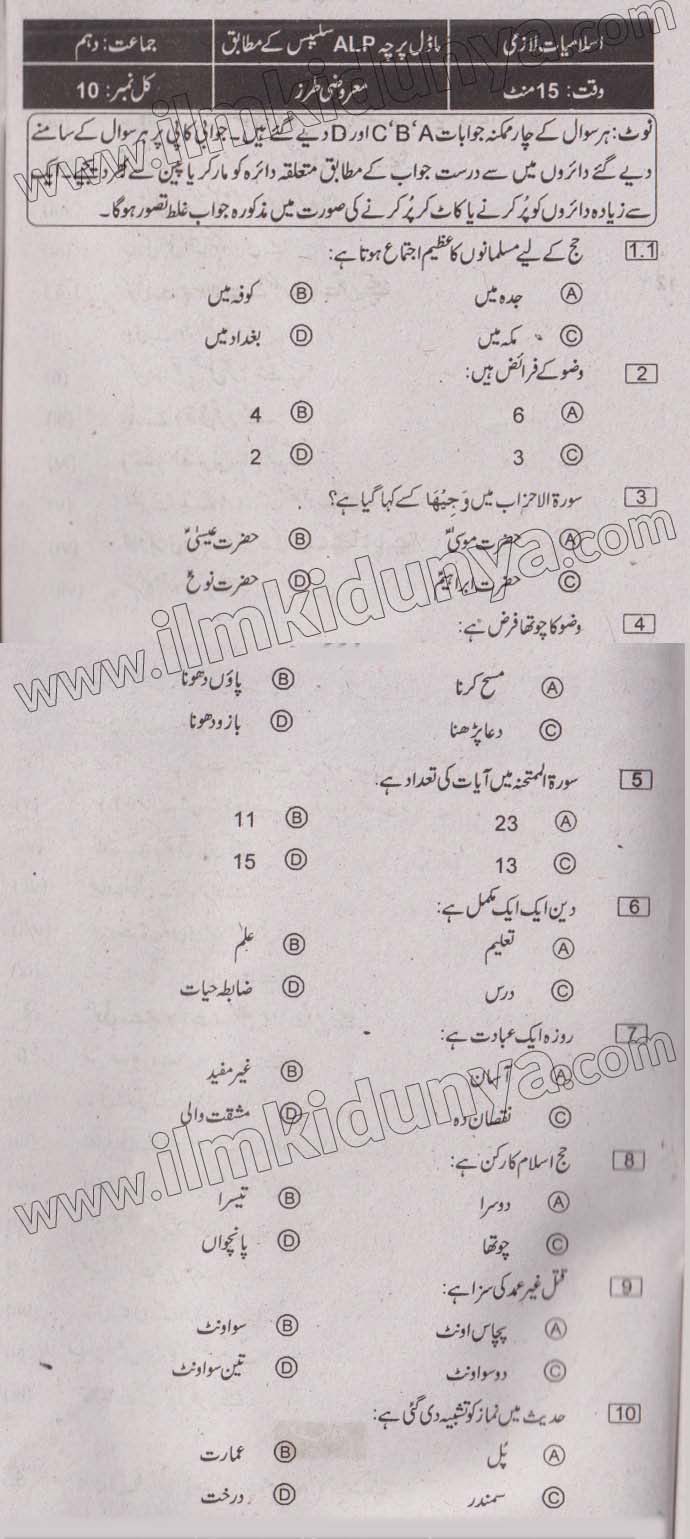 اسلامیات لازمی ماڈل پرچہ ALP سلیبس کے مطابق جماعت: دہم
وقت: 15 منٹ معروضی طرز کل نمبر: 10
نوٹ: ہر سوال کے چار ممکنہ جوابات A'B'C اور D دیے گئے ہیں۔ جوابی کاپی پر ہر سوال کے سامنے
دیے گئے دائروں میں سے درست جواب کے مطابق متعلقہ دائرہ کو مارکر یا پین سے بھر دیجیے۔ ایک
سے زیادہ دائروں کو پُر کرنے یا کاٹ کر پُر کرنے کی صورت میں مذکورہ جواب غلط تصور ہوگا۔
1.1 حج کے لیے مسلمانوں کا عظیم اجتماع ہوتا ہے:
A جدہ میں B کوفہ میں
C مکہ میں D بغداد میں
2 وضو کے فرائض ہیں:
A 6 B 4
C 3 D 2
3 سورۃ الاحزاب میں وَجِیْھَا کسے کہا گیا ہے؟
A حضرت موسیٰؑ B حضرت عیسیٰؑ
C حضرت ابراہیمؑ D حضرت نوحؑ
4 وضو کا چوتھا فرض ہے:
A مسح کرنا B پاؤں دھونا
C دعا پڑھنا D بازو دھونا
5 سورۃ الممتحنہ میں آیات کی تعداد ہے۔
A 23 B 11
C 13 D 15
6 دین ایک ایک مکمل ہے:
A تعلیم B علم
C درس D ضابطہ حیات
7 روزہ ایک عبادت ہے:
A آسان B غیر مفید
C نقصان دہ D مشقت والی
8 حج اسلام کا رکن ہے:
A دوسرا B تیسرا
C چوتھا D پانچواں
9 قتل غیر عمد کی سزا ہے:
A پچاس اونٹ B سو اونٹ
C دو سو اونٹ D تین سو اونٹ
10 حدیث میں نماز کو تشبیہ دی گئی ہے:
A پُل B عمارت
C سمندر D درخت
www.ilmkidunya.com
www.ilmkidunya.com
www.ilmkidunya.com